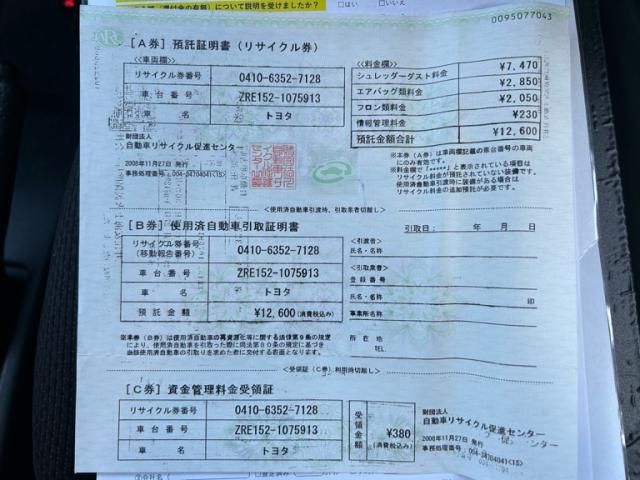 (還付金の有無)について説明を受けましたか? □はい □いいえ
0095077043
[A券] 預託証明書(リサイクル券)
<<車両欄>>
リサイクル券番号 0410-6352-7128
車台番号 ZRE152-1075913
車名 トヨタ
財団法人
自動車リサイクル促進センター
2008年11月27日 発行
事務処理番号:004-24704041<1S>
<<料金欄>>
シュレッダーダスト料金 ¥7,470
エアバッグ類料金 ¥2,850
フロン類料金 ¥2,050
情報管理料金 ¥230
預託金額合計 ¥12,600
※本券(A券)は車両欄記載の車台番号の車両
にのみ有効です。
※料金欄が「*****」と表示されている項目は
リサイクル料金が預託されていない装備です。
使用済自動車引渡時に装備がある場合は
リサイクル料金の追加預託が必要です。
<使用済自動車引渡時、引取業者切離し>
[B券] 使用済自動車引取証明書
引取日: 年 月 日
リサイクル券番号
(移動報告番号) 0410-6352-7128
車台番号 ZRE152-1075913
車名 トヨタ
預託金額 ¥12,600(消費税込み)
<引渡者>
氏名・名称
<引取業者>
登録番号
氏名・名称 印
事業所名
所在地
TEL.
※本券(B券)は使用済自動車の再資源化等に関する法律第9条の規定
により、使用済自動車を引取った際に同法第80条の規定に基づき
当該使用済自動車の引取りを求めた者に交付する書面となります。
<受領証(C券)利用時切離し>
[C券] 資金管理料金受領証
リサイクル券番号 0410-6352-7128
車台番号 ZRE152-1075913
車名 トヨタ
受領金額 ¥380
(消費税込み)
財団法人
自動車リサイクル促進センター
2008年11月27日 発行
事務処理番号:004-24704041<1S>